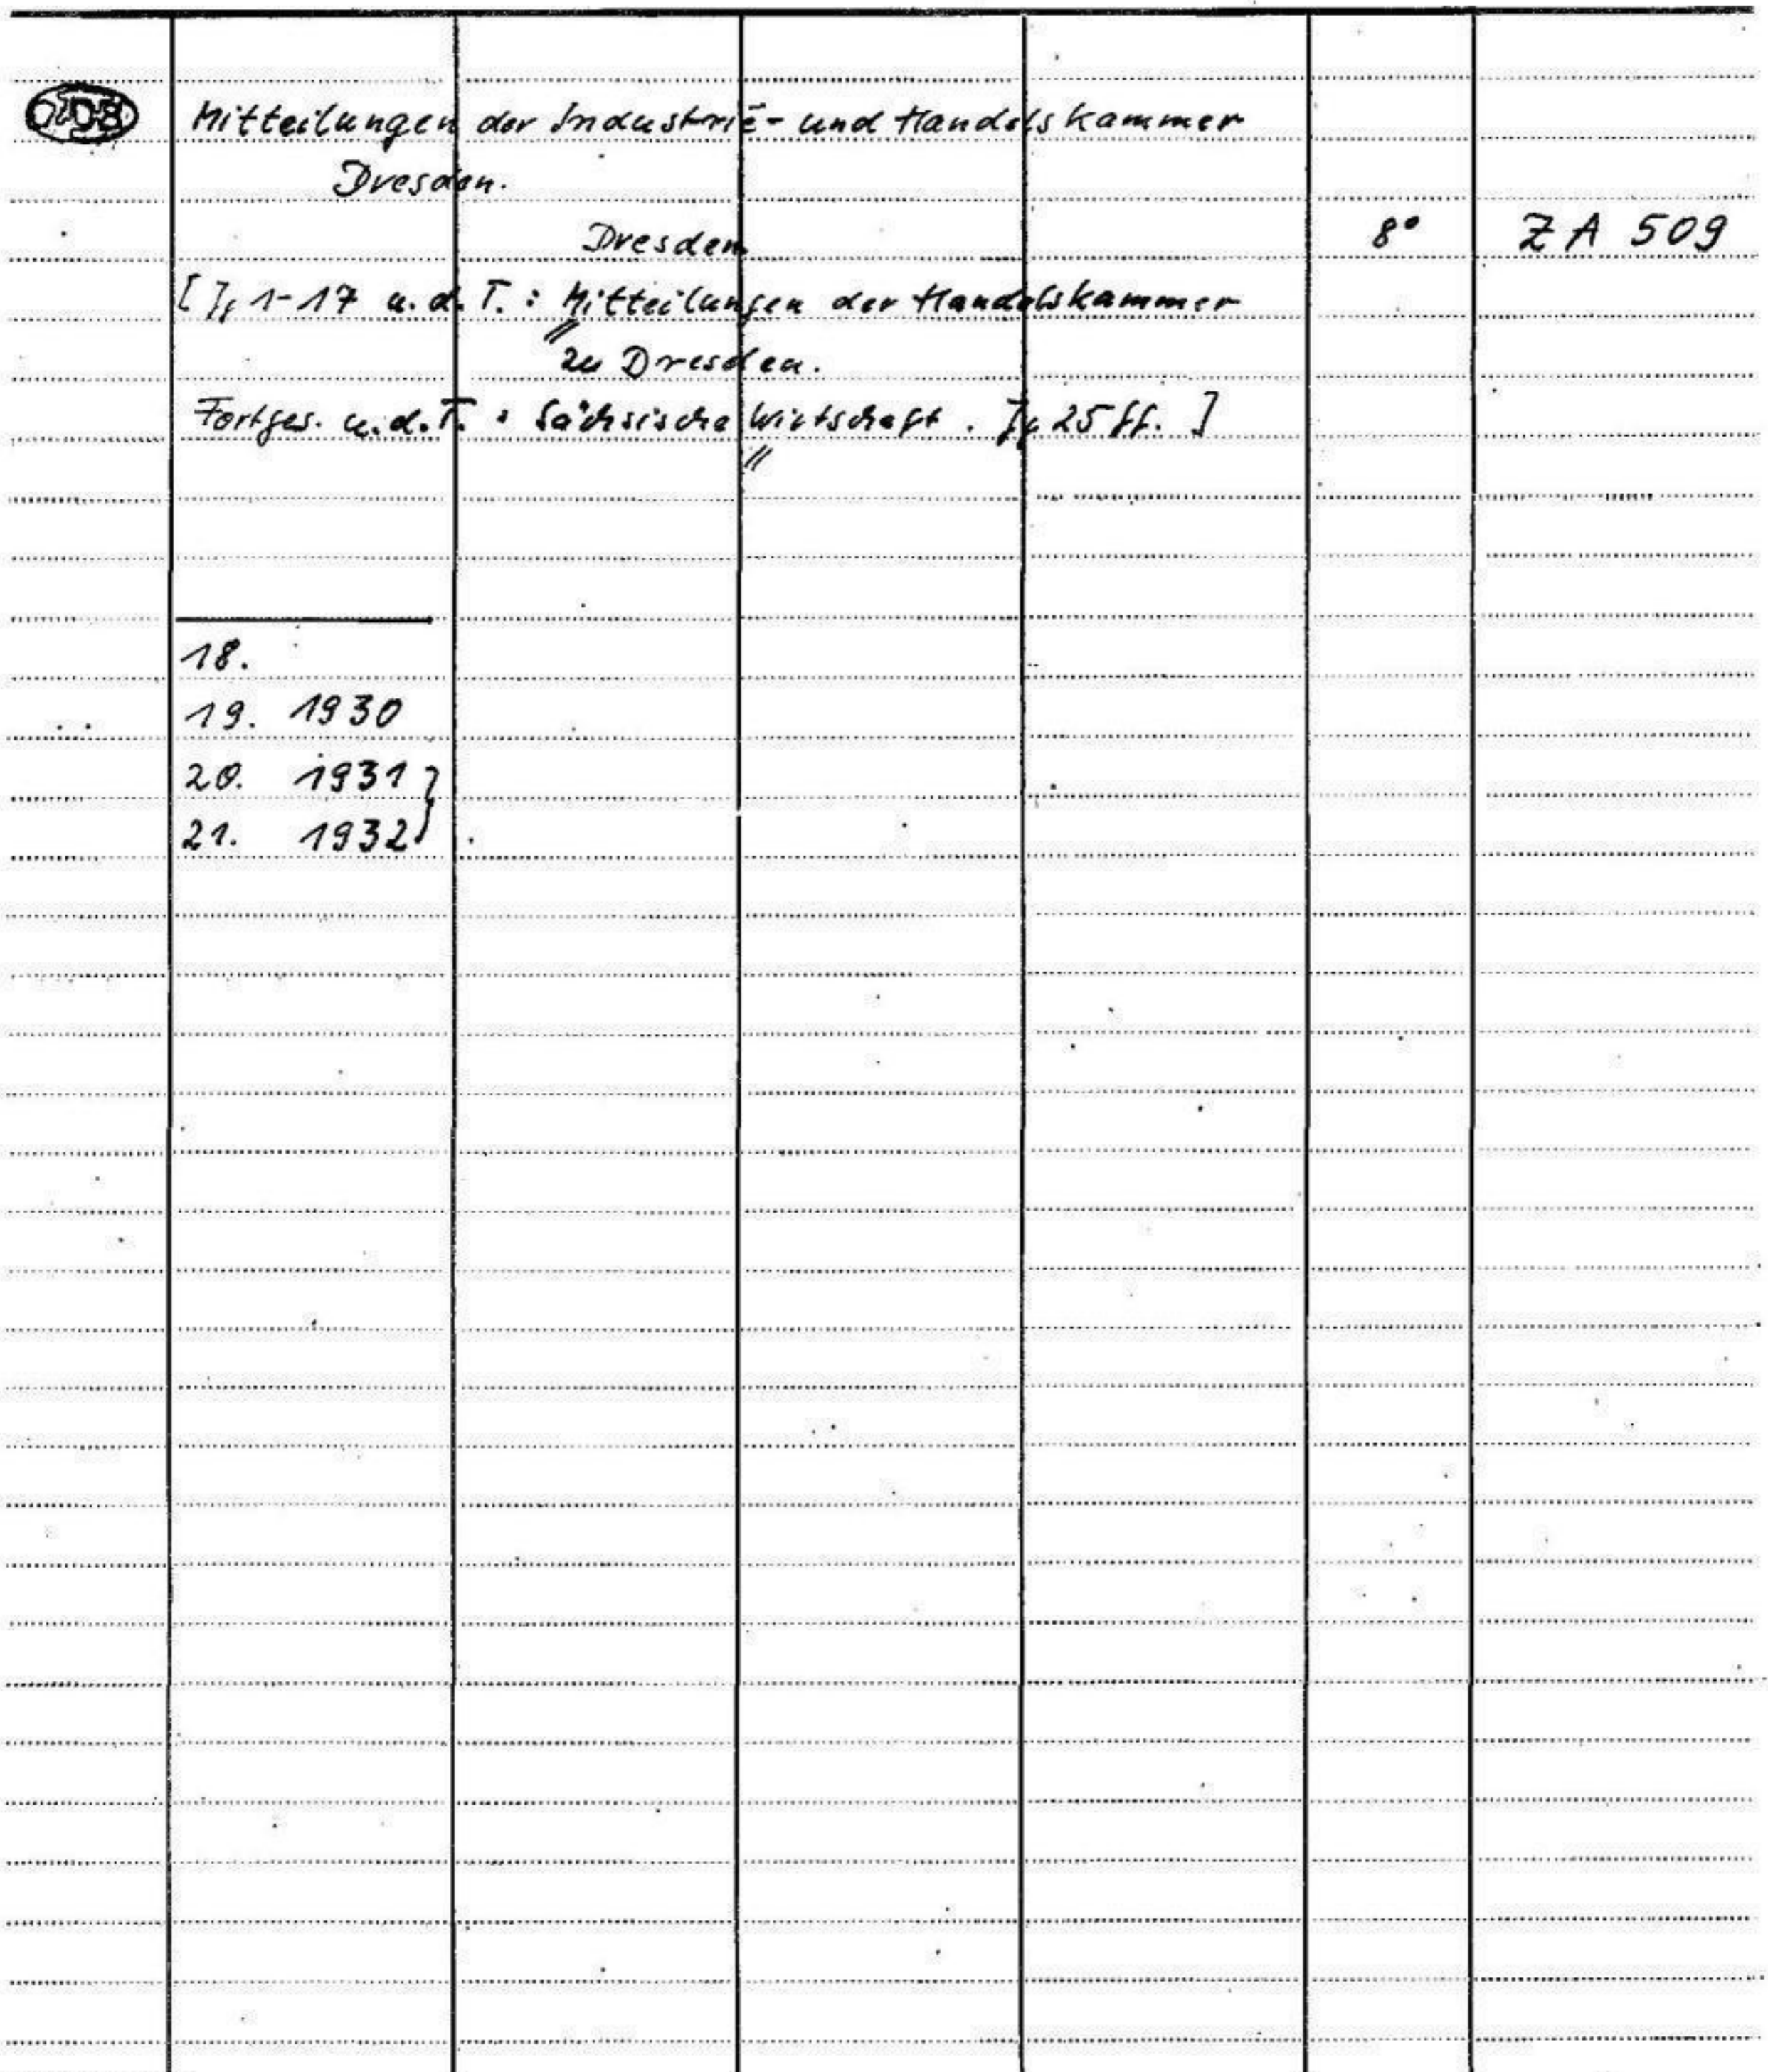 Mitteilungen der Industrie- und Handelskammer
Dresden.
Dresden 8° ZA 509
[Jg 1-17 u.d.T.: Mitteilungen der Handelskammer
zu Dresden.
Fortges. u.d.T.: Sächsische Wirtschaft. Jg 25ff.]
18.
19. 1930
20. 1931
21. 1932